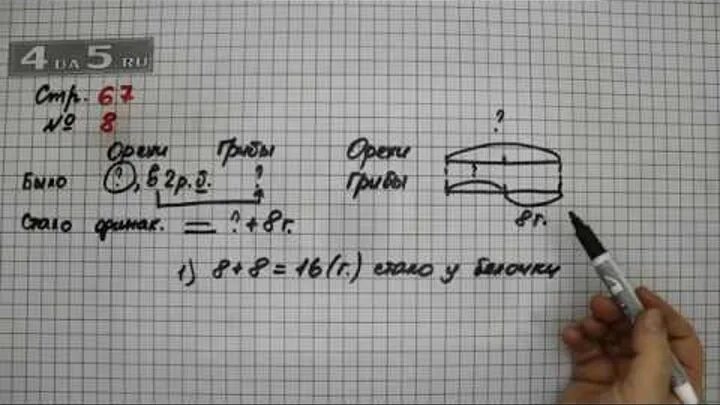 4 UA 5 RU
Стр. 67
№ 8
Орехи Грибы
Было ?, в 2 р. б. ?
Стало одинак. = ? + 8 г.
Орехи
Грибы
?
?
8 г.
1) 8 + 8 = 16 (г.) стало у белочки